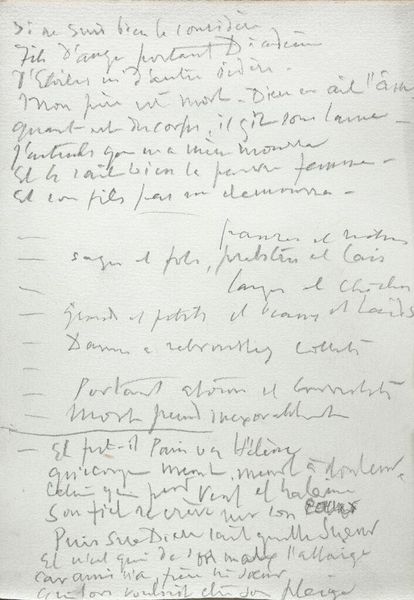 Si ne suis bien le considère
Fils d'ange portant Diadème
D'Etoiles ni d'autre sidère.
Mon père est mort. Dieu en ait l'âme
quant est du corps, il gît sous lame -
J'entends que ma mère mourra
Et le sait bien la pauvre femme -
Et son fils pas ne demourra -
— pauvres et riches
— sages et fols, prebstres et lais
— larges et chiches
— Grands et petits et beaux et laids
— Dames a rebrassés collets
— Portant atours et bourrelets
— Mort prend inexorablement
— Et fut-il Paris ou Hélène
quiconque meurt, meurt à douleur.
Celui qui perd vent et haleine
Son fiel se crève sur son coeur
Puis sue Dieu sait quelle sueur
Et n'est qui de ses maux l'allège
car ami n'a frère ni soeur
qui lors voulsist être son pleige